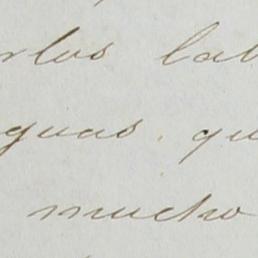 rlos lab
guas. qu
mucho